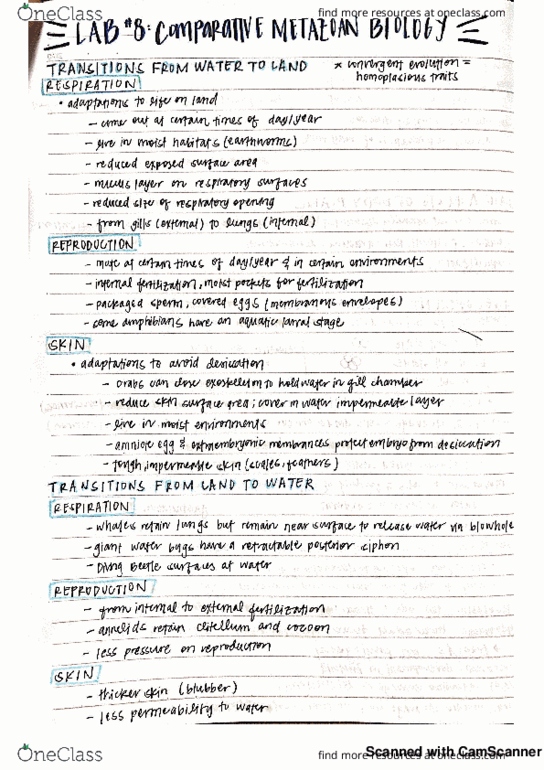 OneClass
find more resources at oneclass.com
LAB #8: COMPARATIVE METAZOAN BIOLOGY
TRANSITIONS FROM WATER TO LAND
* convergent evolution =
homoplasious traits
RESPIRATION
• adaptations to life on land
- come out at certain times of day/year
- live in moist habitats (earthworms)
- reduced exposed surface area
- mucus layer on respiratory surfaces
- reduced size of respiratory opening
- from gills (external) to lungs (internal)
REPRODUCTION
- mate at certain times of day/year & in certain environments
- internal fertilization, moist pockets for fertilization
- packaged sperm, covered eggs (membranous envelopes)
- some amphibians have an aquatic larval stage
SKIN
• adaptations to avoid desiccation
- crabs can close exoskeleton to hold water in gill chamber
- reduce skin surface area; cover in water impermeable layer
- live in moist environments
- amniote egg & extraembryonic membranes protect embryo from desiccation
- tough, impermeable skin (scales, feathers)
TRANSITIONS FROM LAND TO WATER
RESPIRATION
- whales retain lungs but remain near surface to release water via blowhole
- giant water bugs have a retractable posterior siphon
- Diving Beetle surfaces at water
REPRODUCTION
- from internal to external fertilization
- annelids retain clitellum and cocoon
- less pressure on reproduction
SKIN
- thicker skin (blubber)
- less permeability to water
OneClass
find more resources at oneclass.com
Scanned with CamScanner